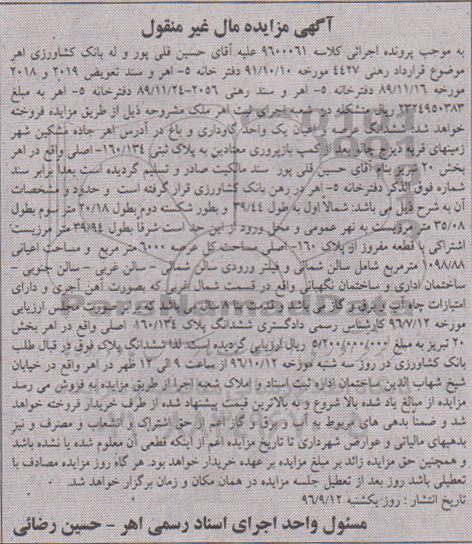 آگهی مزایده مال غیر منقول
به موجب پرونده اجرائی کلاسه ۹۶۰۰۰۶۱ علیه آقای حسین قلی پور و له بانک کشاورزی اهر
موضوع قرارداد رهنی ۴۴۲۷ مورخه ۹۱/۱۰/۱۰ دفتر خانه ۵- اهر و سند تعویض ۲۰۱۹ و ۲۰۱۸
مورخه ۸۹/۱۱/۱۶ دفترخانه ۵- اهر و سند رهنی ۲۰۵۶-۸۹/۱۱/۲۴ دفترخانه ۵- اهر به مبلغ
۲۳۲۴۹۵۰۳۸۳ ریال متشکله در شعبه اجرای ثبت اهر ملک مشروحه ذیل از طریق مزایده فروخته
خواهد شد. ششدانگ عرصه و اعیان یک واحد گاوداری و باغ در آدرس اهر جاده مشگین شهر
زمینهای قریه دیزج جالو بعد از کمپ بازپروری معتادین به پلاک ثبتی ۱۶۰/۱۳۴- اصلی واقع در اهر
بخش ۲۰ تبریز بنام آقای حسین قلی پور سند مالکیت صادر و تسلیم گردیده است بعدا برابر سند
شماره فوق الذکر دفترخانه ۵- اهر در رهن بانک کشاورزی قرار گرفته است و حدود و مشخصات
آن به شرح ذیل می باشد: شمالا اول به طول ۳۹/۴۴ و بطور شکسته دوم بطول ۲۰/۱۸ متر سوم بطول
۳۵/۰۸ متر مرزیست به نهر عمومی و محل ورود از این حد است شرقا بطول ۳۹/۹۴ متر مرزیست
اشتراکی با قطعه مفروز از پلاک ۱۶۰- اصلی مساحت کل عرصه ۶۰۰۰ متر مربع و مساحت اعیانی
۱۰۹۸/۸۸ مترمربع شامل سالن شمالی و فیلتر ورودی سالن شمالی - سالن غربی - سالن جنوبی -
ساختمان اداری و ساختمان نگهبانی واقع در قسمت شمال غربی که بصورت آهن آجری و دارای
امتیازات چاه آب و برق و گاز می باشد و قدمت بنا ۸ سال می باشد که برابر صورت مجلس ارزیابی
۹۶/۷/۱۲ مورخه کارشناس رسمی دادگستری ششدانگ پلاک ۱۶۰/۱۳۴ اصلی واقع در اهر بخش
۲۰ تبریز به مبلغ ۵/۲۰۰/۰۰۰/۰۰۰ ریال ارزیابی گردیده است. لذا ششدانگ پلاک فوق در قبال طلب
بانک کشاورزی در روز سه شنبه مورخه ۹۶/۱۰/۱۲ از ساعت ۹ الی ۱۲ ظهر در اهر واقع در خیابان
شیخ شهاب الدین ساختمان اداره ثبت اسناد و املاک شعبه اجرا از طریق مزایده به فروش می رسد
مزایده از مبالغ یاد شده بالا شروع و به بالاترین قیمت پیشنهاد شده از طرف خریدار فروخته خواهد
شد و ضمناً بدهی های مربوط به آب و برق و گاز اعم از حق اشتراک و انشعاب و مصترف و نیز
بدهیهای مالیاتی و عوارض شهرداری تا تاریخ مزایده اعم از اینکه قطعی آن معلوم شده یا نشده باشد
و همچنین حق مزایده زائد بر مبلغ مزایده بر عهده خریدار خواهد بود. هر گاه روز مزایده مصادف با
تعطیلی باشد روز بعد از تعطیل جلسه مزایده در همان مکان و زمان برگزار خواهد شد.
تاریخ انتشار : روز یکشنبه ۹۶/۹/۱۲
مسئول واحد اجرای اسناد رسمی اهر - حسین رضائی
ParsNamadData